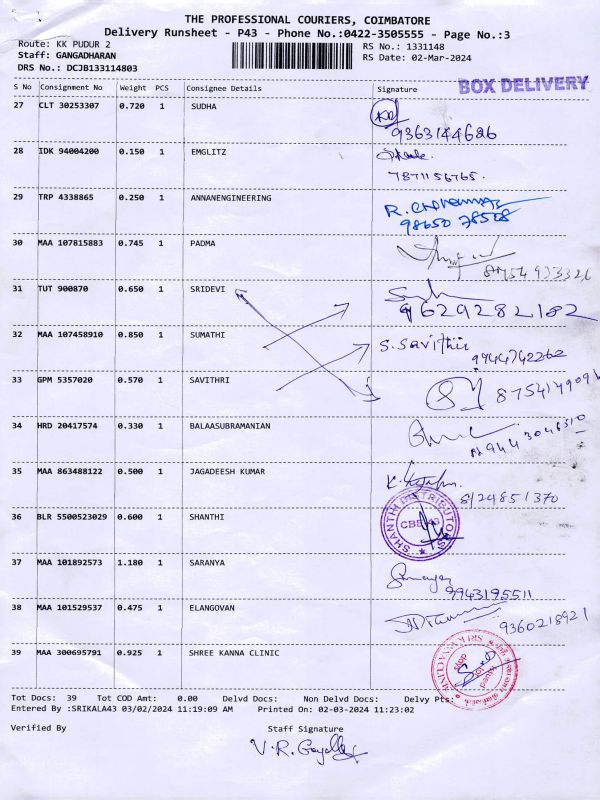 THE PROFESSIONAL COURIERS, COIMBATORE
Delivery Runsheet - P43 - Phone No.:0422-3505555 - Page No.:3
Route: KK PUDUR 2
RS No.: 1331148
Staff: GANGADHARAN
RS Date: 02-Mar-2024
DRS No.: DCJB133114803
BOX DELIVERY
S No Consignment No Weight PCS Consignee Details Signature
27 CLT 30253307 0.720 1 SUDHA
9363144626
28 IDK 94004200 0.150 1 EMGLITZ
7871156765.
29 TRP 4338865 0.250 1 ANNANENGINEERING
98650 78568
30 MAA 107815883 0.745 1 PADMA
31 TUT 900870 0.650 1 SRIDEVI
9629282182
32 MAA 107458910 0.850 1 SUMATHI
S. Savithri
9944742262
33 GPM 5357020 0.570 1 SAVITHRI
34 HRD 20417574 0.330 1 BALAASUBRAMANIAN
35 MAA 863488122 0.500 1 JAGADEESH KUMAR
8124851370
36 BLR 5500523029 0.600 1 SHANTHI
SHANTHI DISTRIBUTORS
CBE-43
37 MAA 101892573 1.180 1 SARANYA
9943195511
38 MAA 101529537 0.475 1 ELANGOVAN
9360218921
39 MAA 300695791 0.925 1 SHREE KANNA CLINIC
Tot Docs: 39 Tot COD Amt: 0.00 Delvd Docs: Non Delvd Docs: Delvy Pts:
Entered By :SRIKALA43 03/02/2024 11:19:09 AM Printed On: 02-03-2024 11:23:02
Verified By Staff Signature